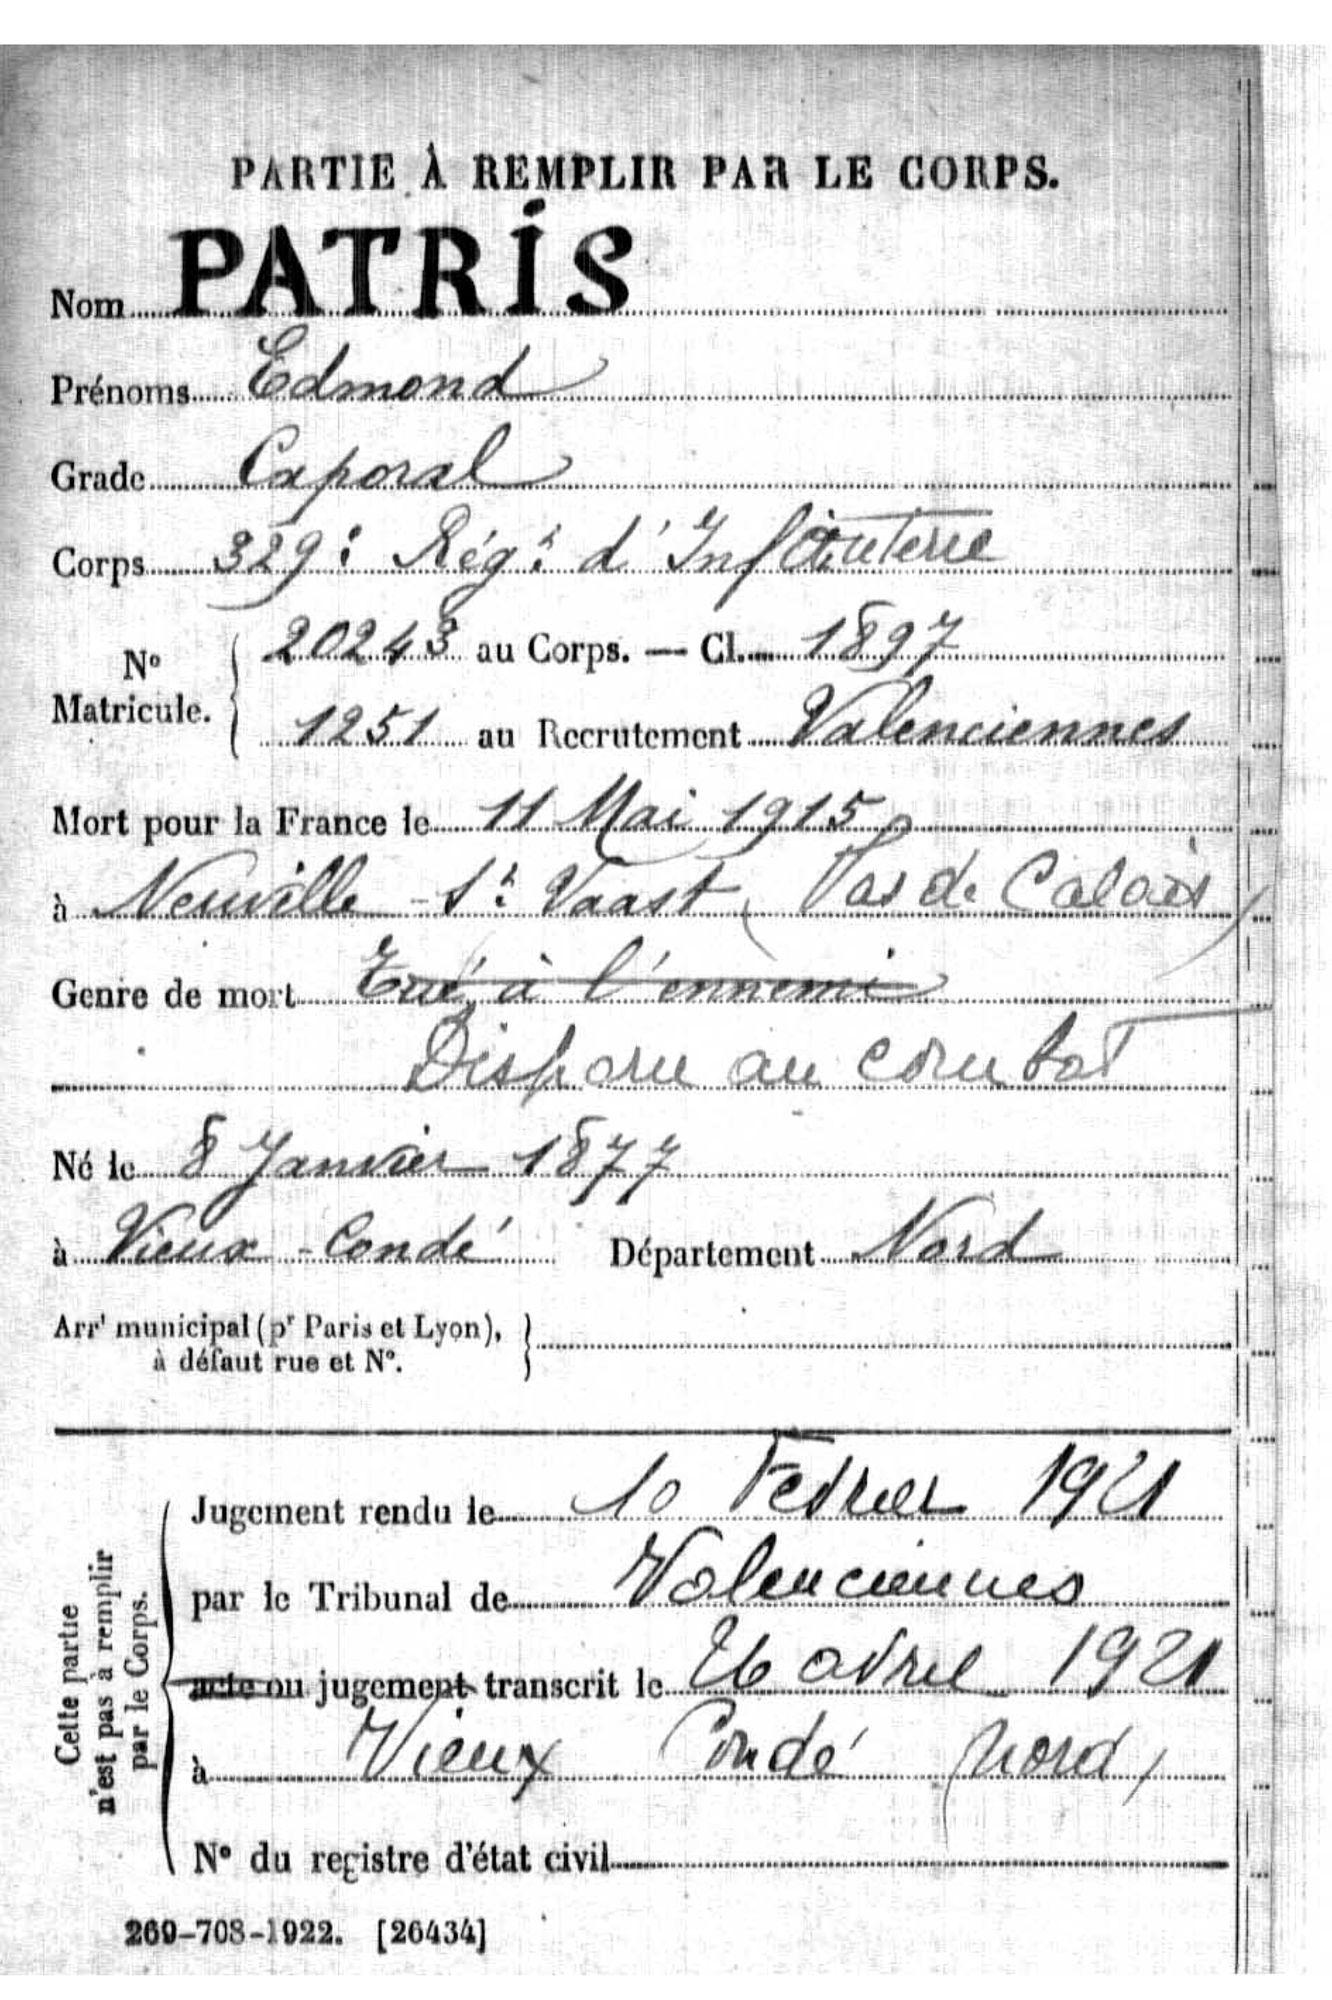 PARTIE À REMPLIR PAR LE CORPS.
Nom PATRIS
Prénoms Edmond
Grade Caporal
Corps 329e Régt d'Infanterie
No Matricule. 20243 au Corps. — Cl. 1897
1251 au Recrutement Valenciennes
Mort pour la France le 11 Mai 1915
à Neuville - St Vaast (Pas de Calais)
Genre de mort Tué à l'ennemi
Disparu au combat
Né le 8 Janvier 1877
à Vieux-Condé Département Nord
Arrt municipal (pr Paris et Lyon),
à défaut rue et No.
Cette partie
n'est pas à remplir
par le Corps.
Jugement rendu le 10 Février 1921
par le Tribunal de Valenciennes
acte ou jugement transcrit le 26 avril 1921
à Vieux Condé (Nord)
No du registre d'état civil
269-708-1922. [26434]